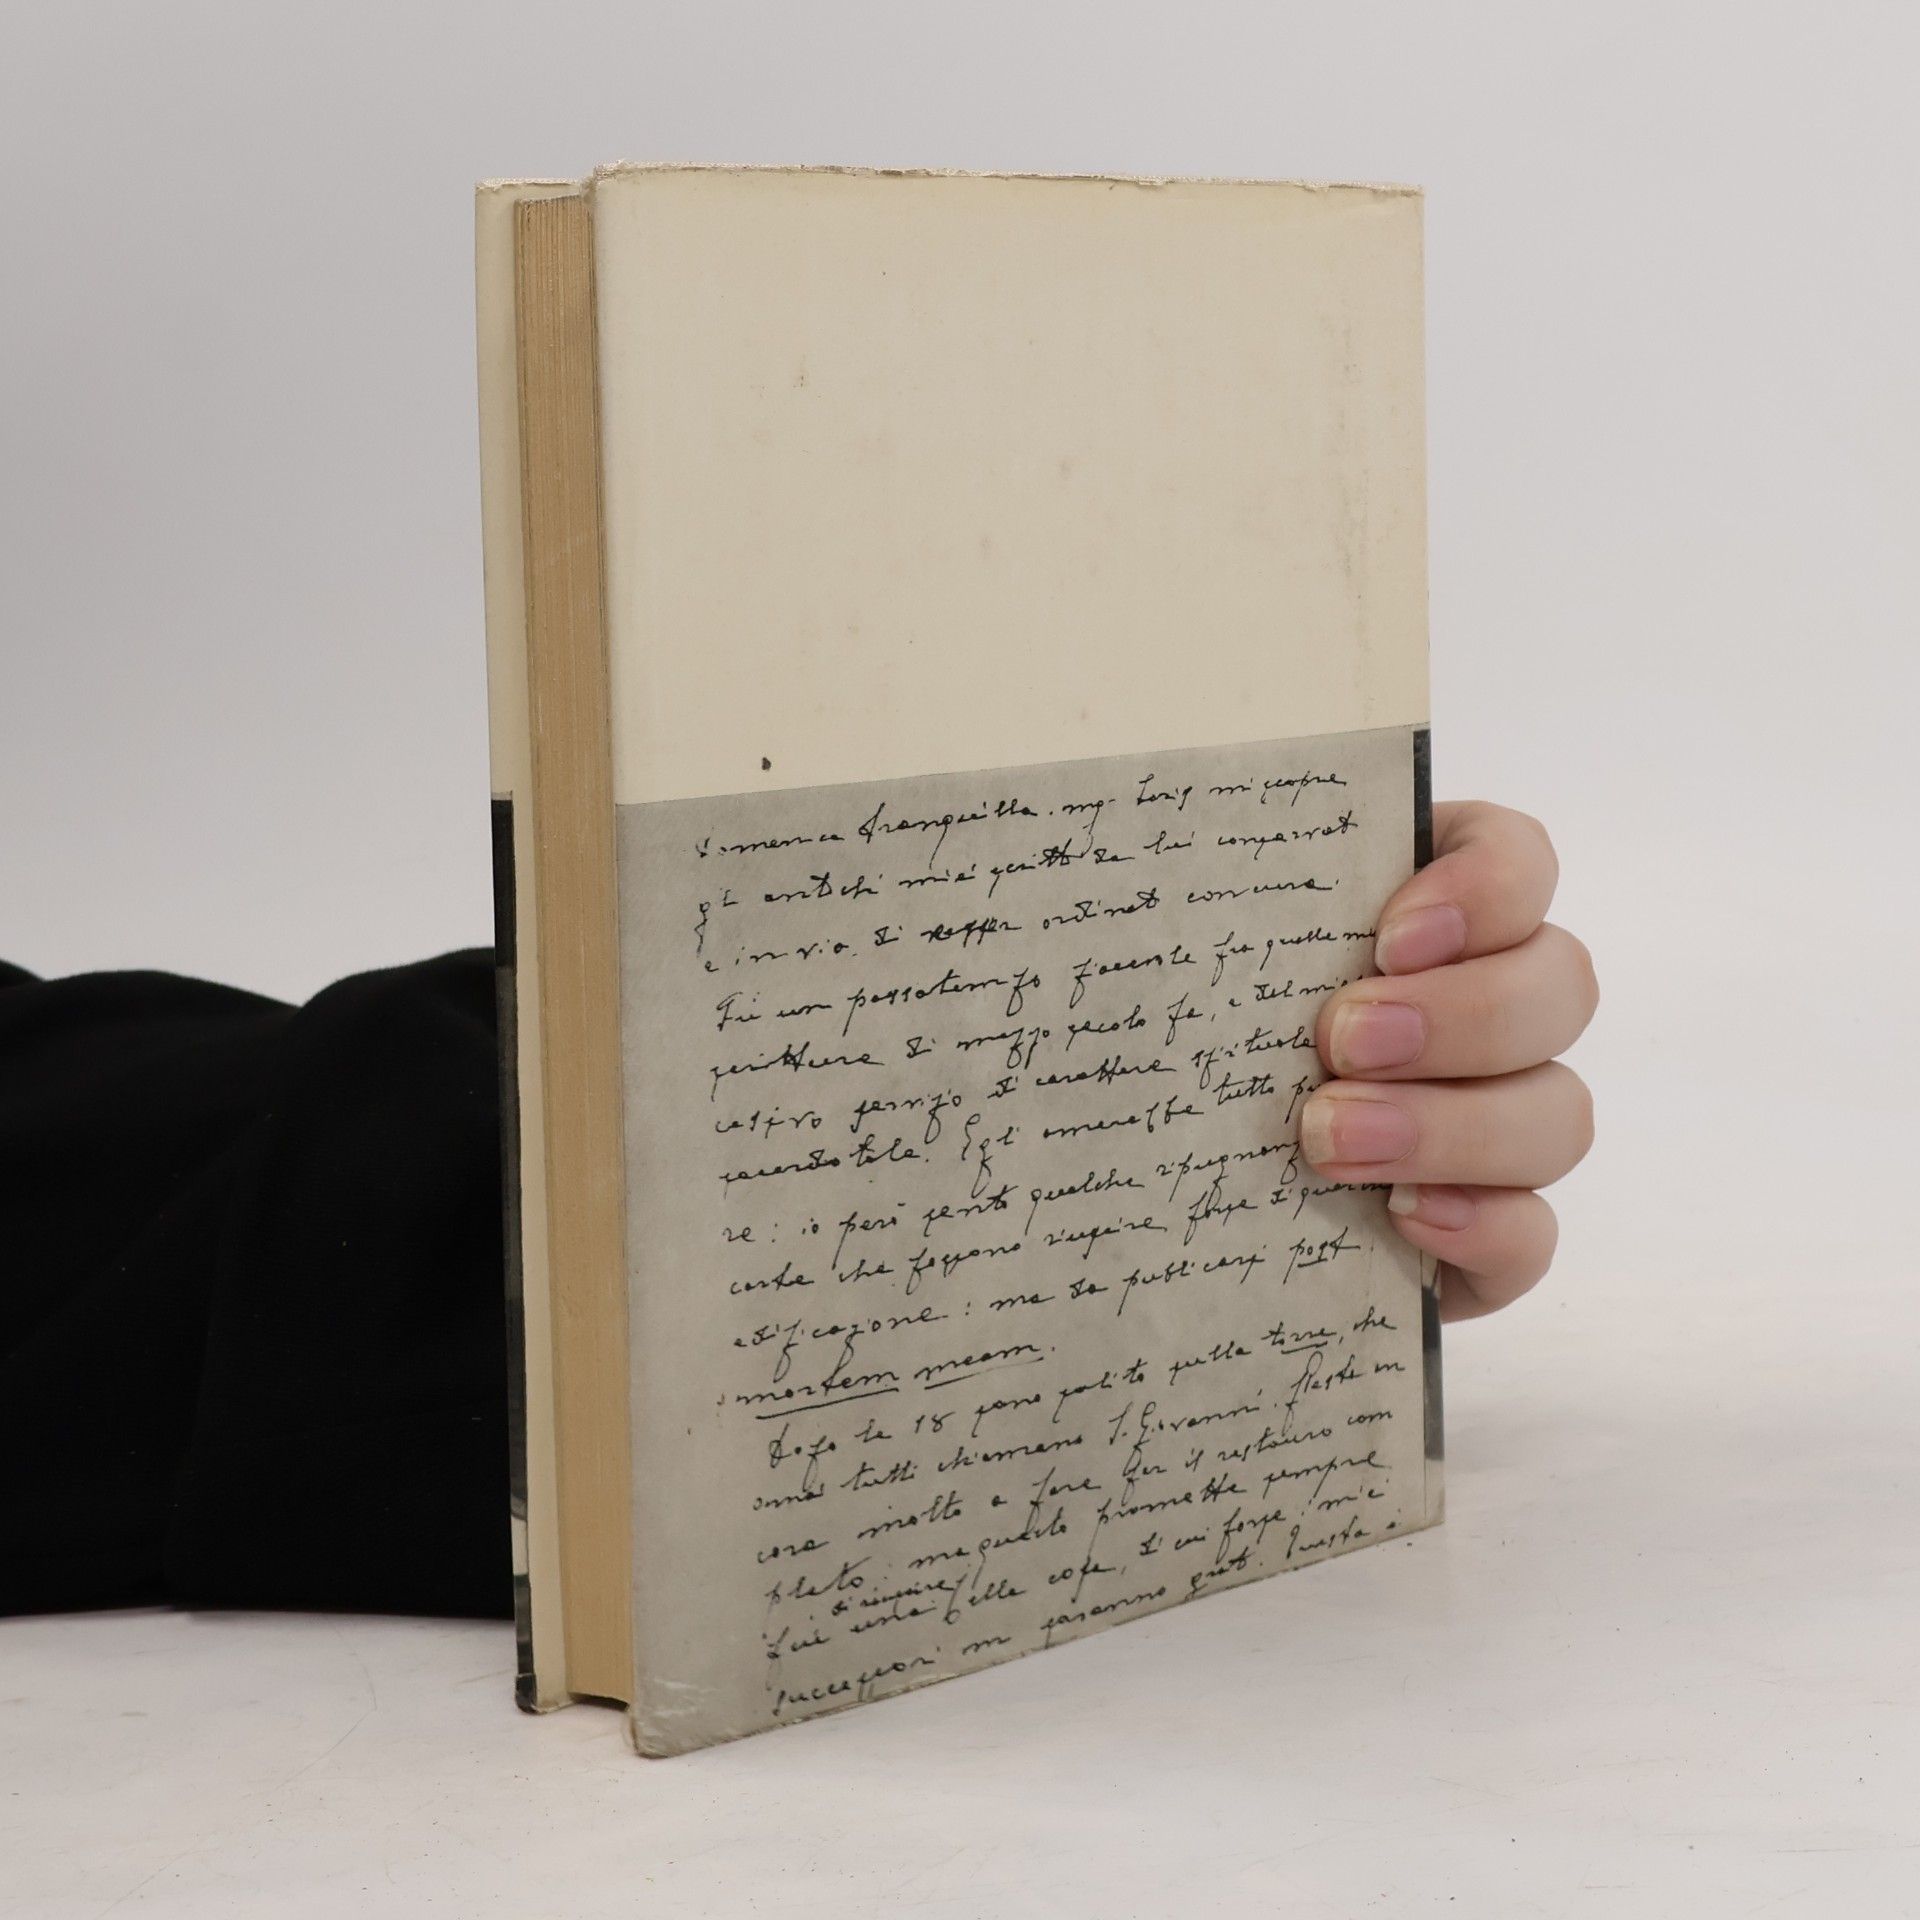 Domenica tranquilla. mg. Loris mi scopre
gli antichi miei scritti da lui conservati
e in via di esser ordinati con cura.
Fu un passatempo piacevole fra quelle mie
scritture di mezzo secolo fa, e del mio
caspro servizio di carattere spirituale
sacerdotale. Egli amerebbe tutto
re: io però sento qualche ripugnanza
carte che possono riuscire forse di qualche
edificazione: ma da publicarsi post
mortem meam.
Dopo le 18 sono salito sulla torre, che
ormai tutti chiamano S. Giovanni. Resta an
cora molto a fare per il restauro com
pleto: ma questo promette sempre
di riuscire
una delle cose, di cui forse i miei
successori mi saranno grati. Questa è